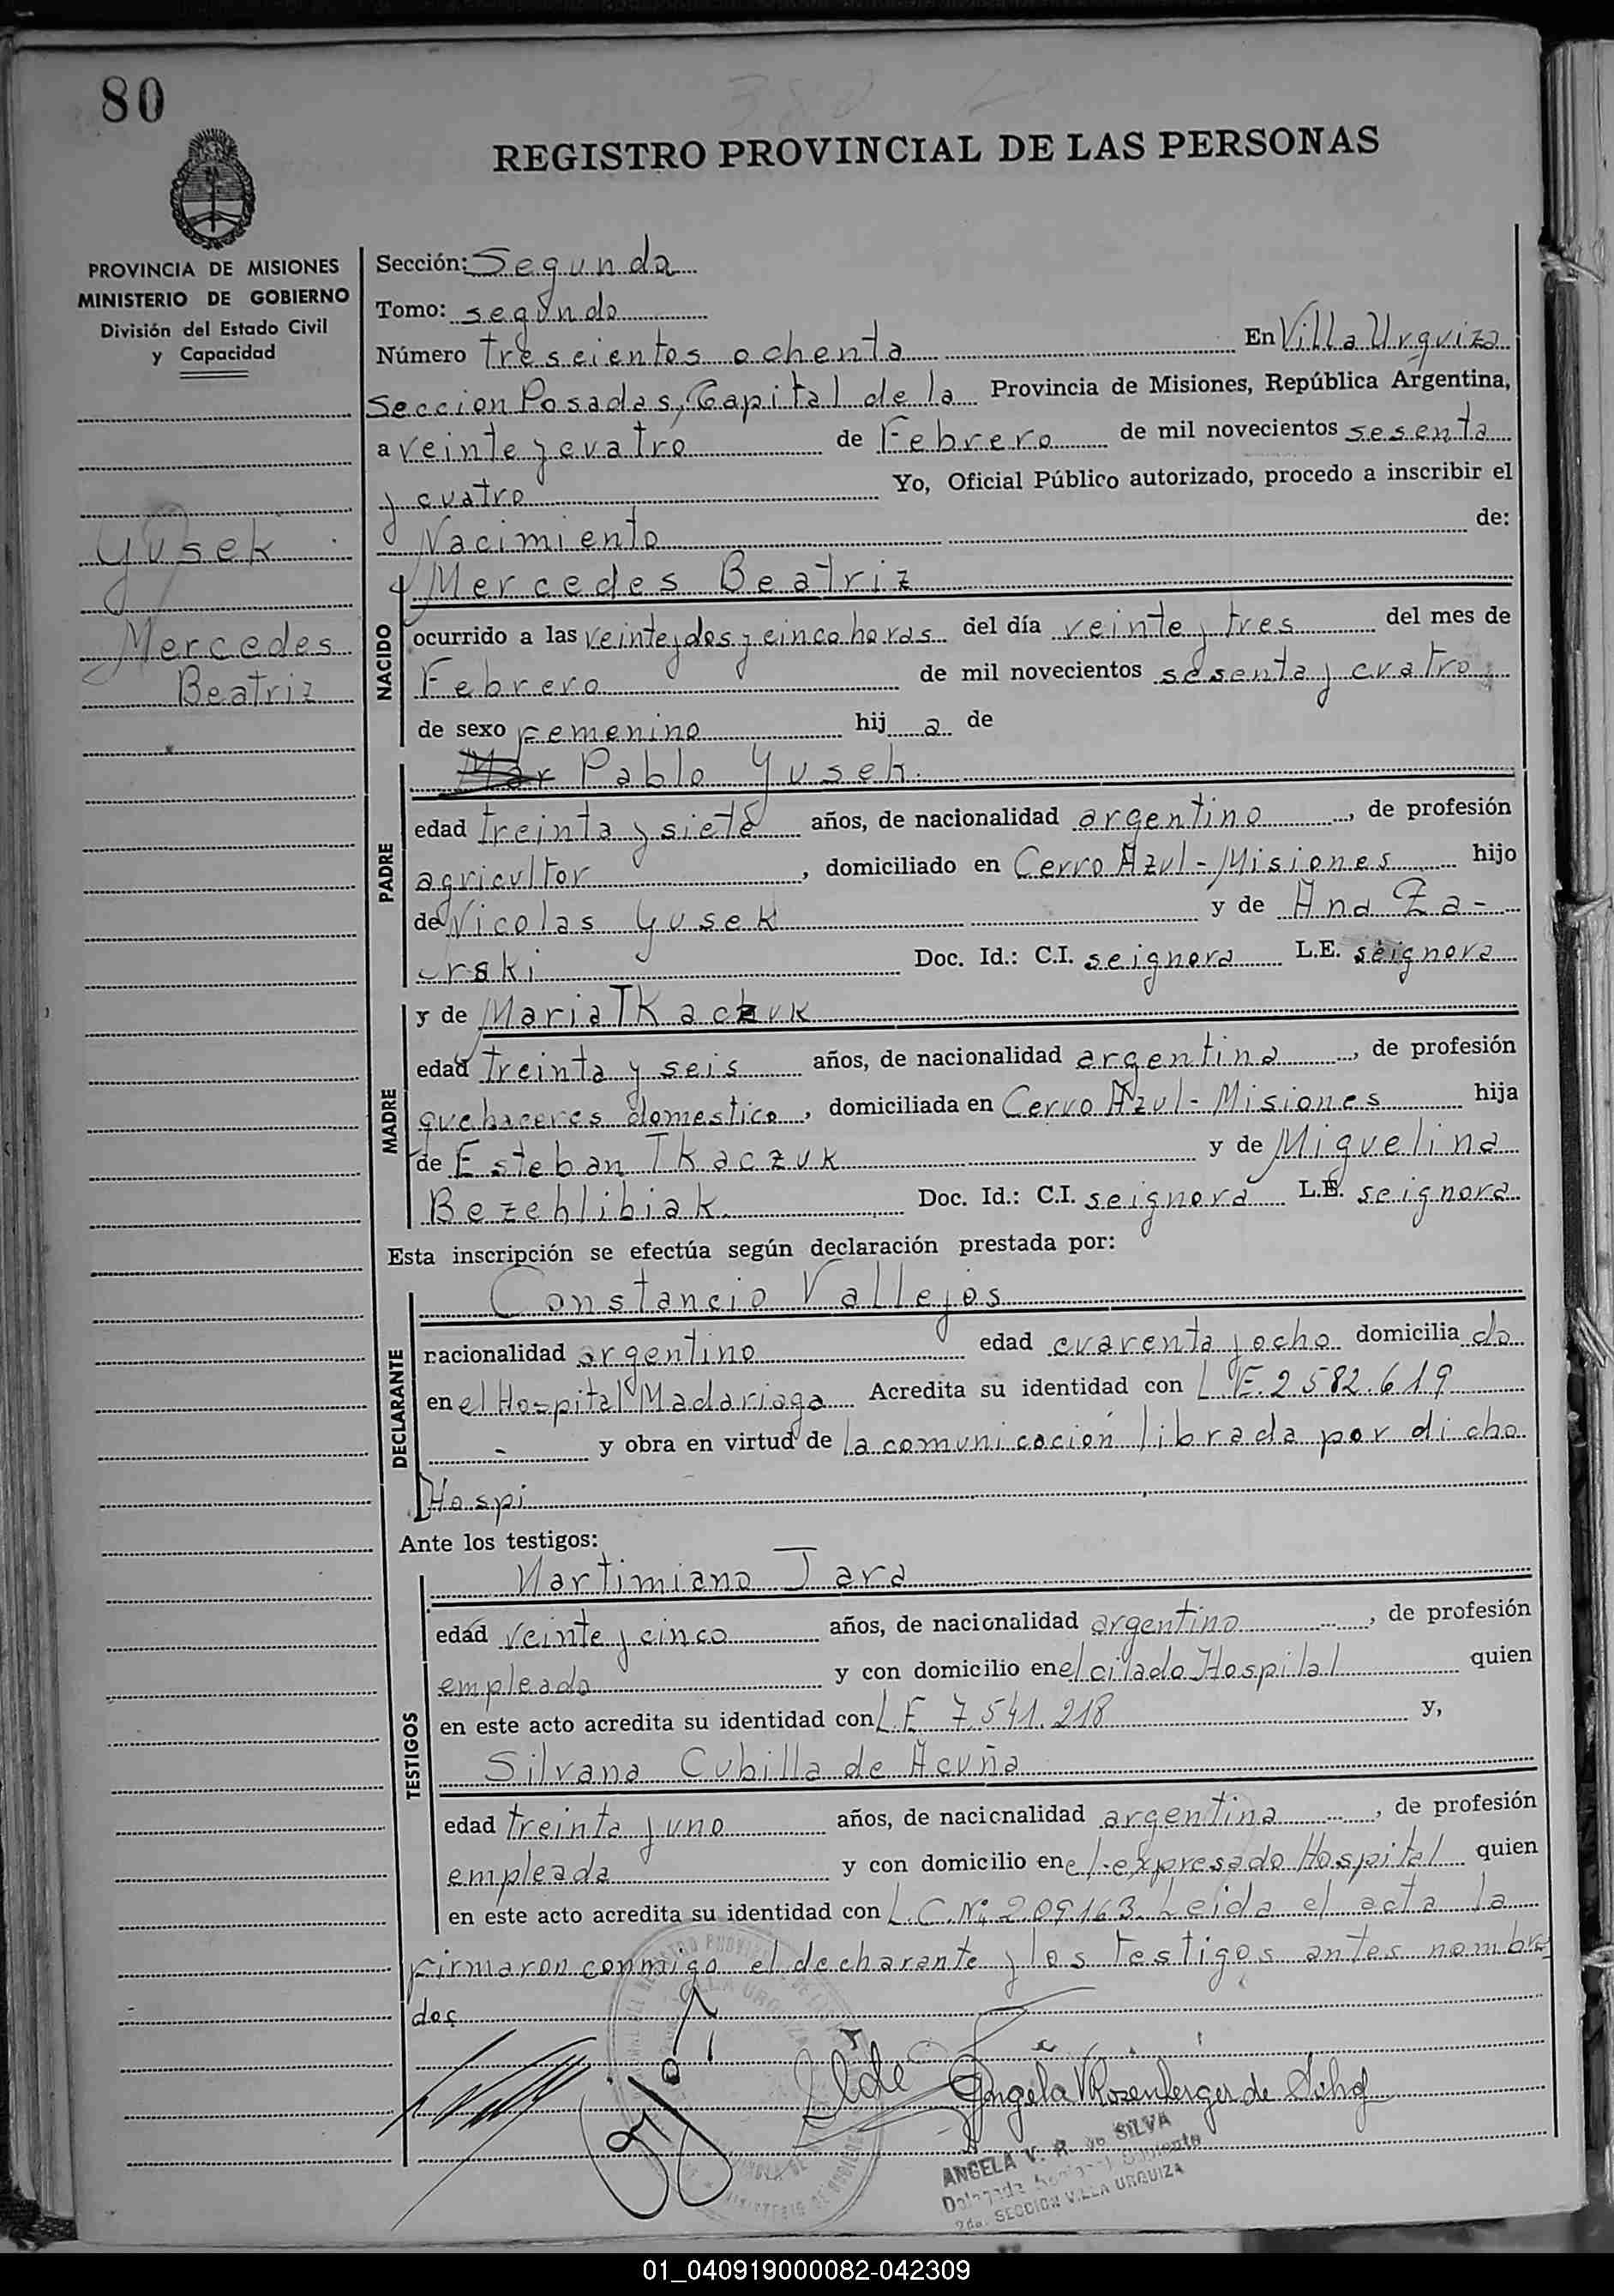 80
REGISTRO PROVINCIAL DE LAS PERSONAS
PROVINCIA DE MISIONES
MINISTERIO DE GOBIERNO
División del Estado Civil
y Capacidad
Yusek
Mercedes
Beatriz
Sección: Segunda
Tomo: segundo
Número trescientos ochenta En Villa Urquiza
Seccion Posadas, Capital de la Provincia de Misiones, República Argentina,
a veinte y cuatro de Febrero de mil novecientos sesenta
y cuatro Yo, Oficial Público autorizado, procedo a inscribir el
Nacimiento de:
NACIDO
Mercedes Beatriz
ocurrido a las veinte y dos y cinco horas del día veinte y tres del mes de
Febrero de mil novecientos sesenta y cuatro
de sexo Femenino hij a de
PADRE
Mar Pablo Yusek
edad treinta y siete años, de nacionalidad argentino, de profesión
agricultor, domiciliado en Cerro Azul - Misiones hijo
de Nicolas Yusek y de Ana Za-
urski Doc. Id.: C.I. se ignora L.E. se ignora
MADRE
y de Maria Tkaczuk
edad treinta y seis años, de nacionalidad argentina, de profesión
quehaceres domestico, domiciliada en Cerro Azul - Misiones hija
de Esteban Tkaczuk y de Miguelina
Bezehlibiak Doc. Id.: C.I. se ignora L.E. se ignora
Esta inscripción se efectúa según declaración prestada por:
DECLARANTE
Constancio Vallejos
nacionalidad argentino edad cuarenta y ocho domicilia do
en el Hospital Madariaga Acredita su identidad con L.E. 2.582.619
- y obra en virtud de la comunicación librada por dicho
Hospi
Ante los testigos:
TESTIGOS
Martimiano Jara
edad veinte y cinco años, de nacionalidad argentino, de profesión
empleado y con domicilio en el citado Hospital quien
en este acto acredita su identidad con L.E 7.541.218 y,
Silvana Cubilla de Acuña
edad treinta y uno años, de nacionalidad argentina, de profesión
empleada y con domicilio en el expresado Hospital quien
en este acto acredita su identidad con L.C.Nº 209163. Leida el acta la
firmaron conmigo el decharante y los testigos antes nombra
dos
Angela V Rozenberger de Silva
ANGELA V. R. de SILVA
2da. SECCION VILLA URQUIZA
01_040919000082-042309